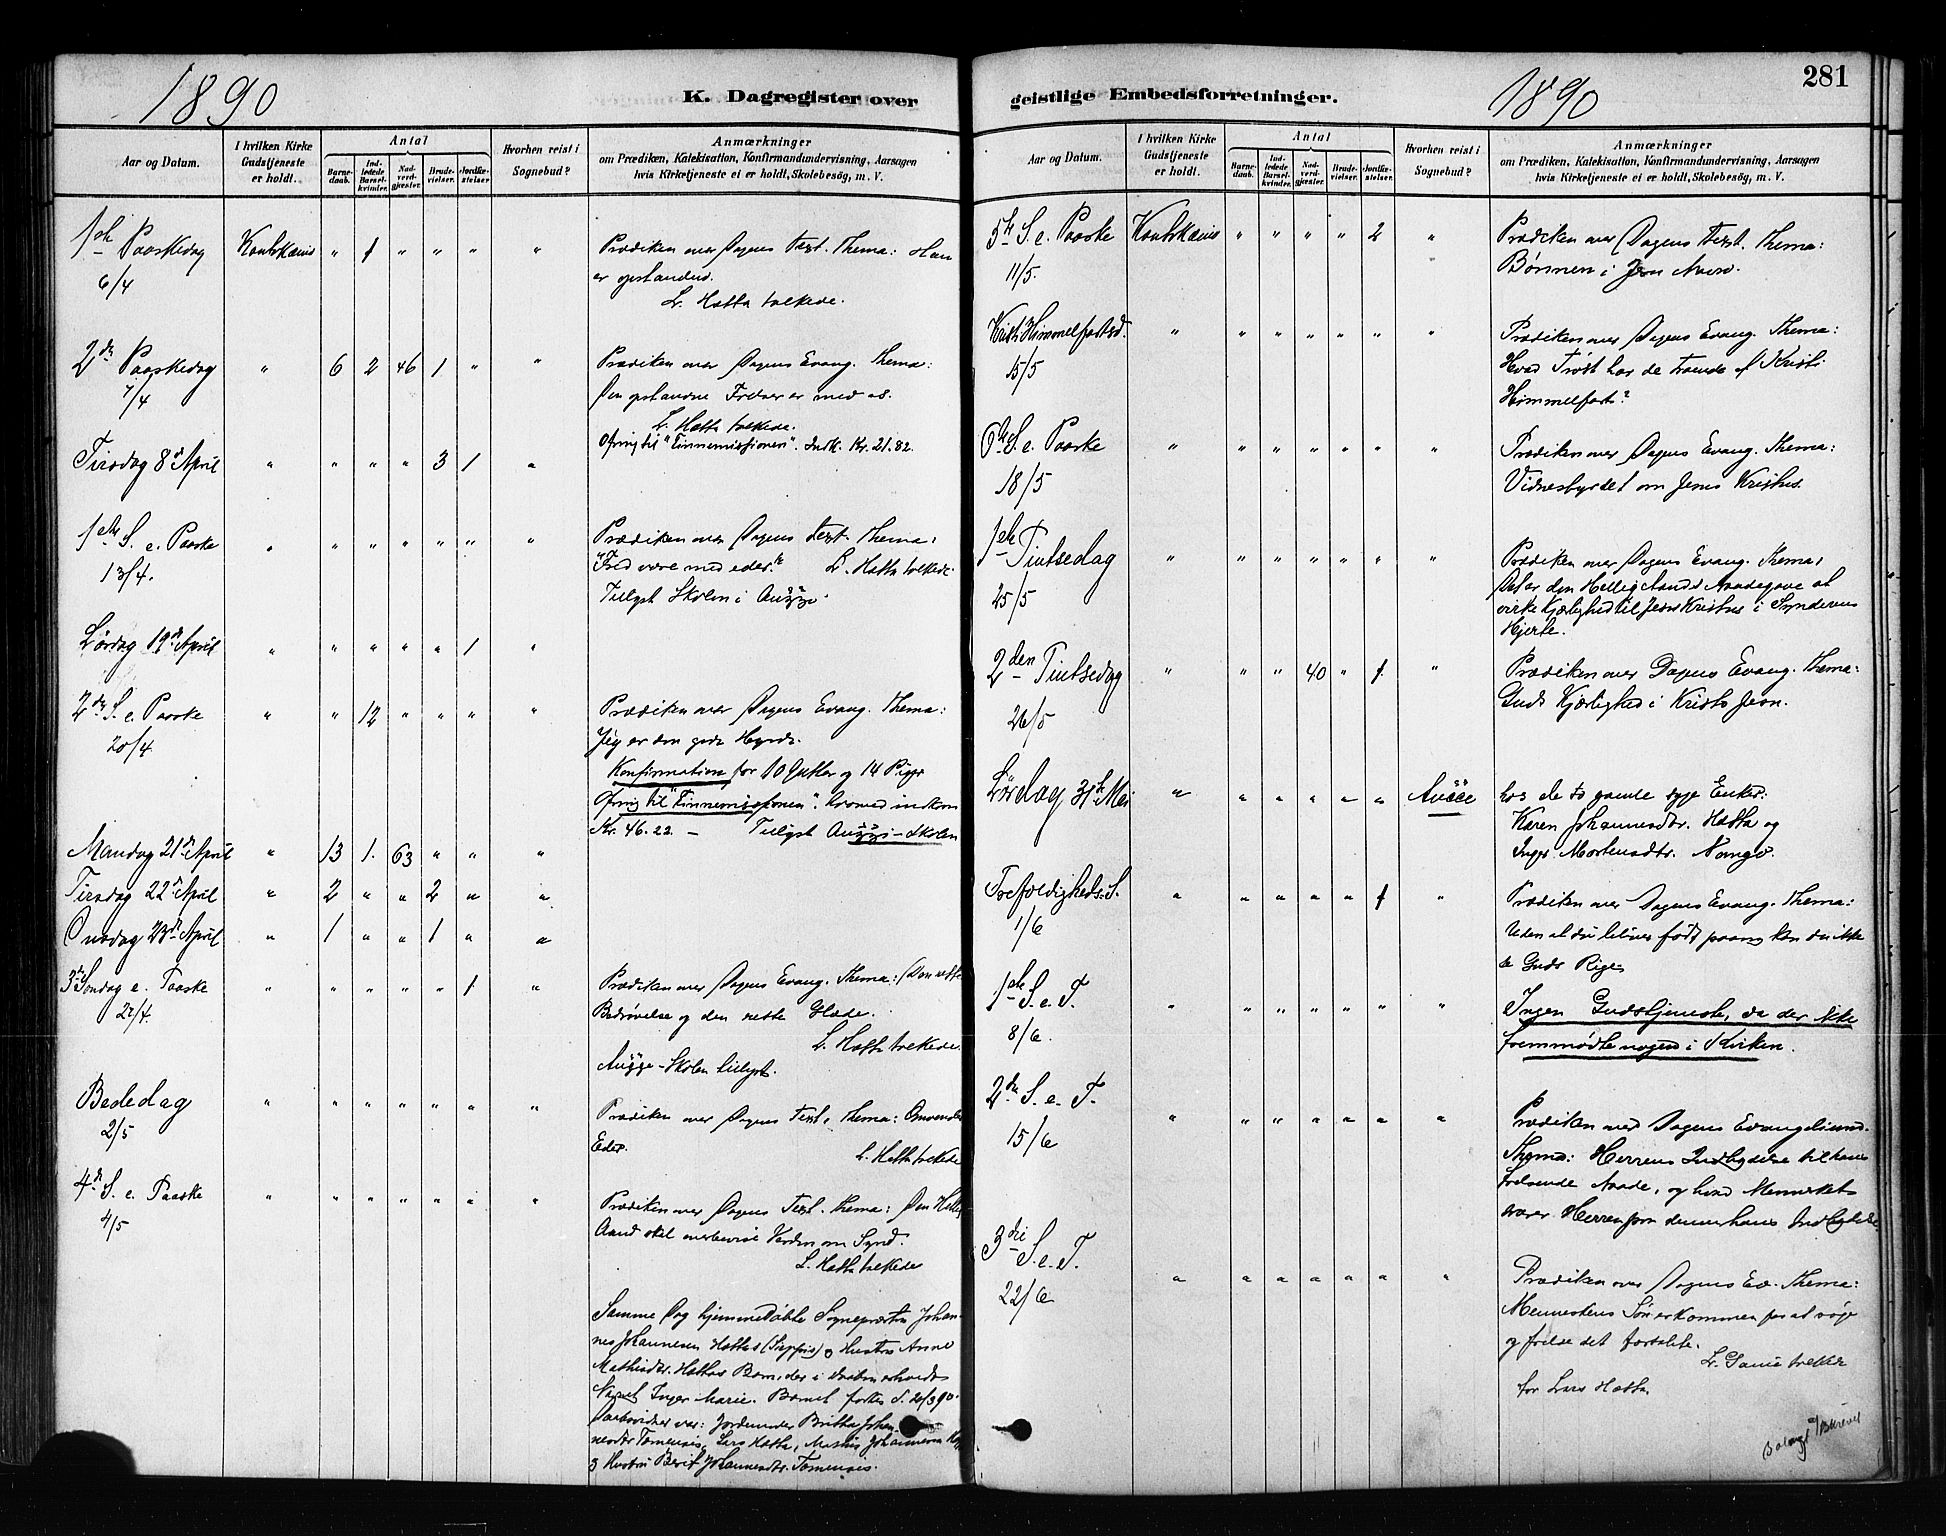 1890
K. Dagregister over
Aar og Datum.
I hvilken Kirke Gudstjeneste er holdt.
Antal
Barnedaab.
Indledede Barselkvinder.
Nadverdgjæster.
Brudevielser.
Jordfæstelser
Hvorhen reist i Sognebud?
Anmærkninger
om Prædiken, Katekisation, Konfirmandundervisning, Aarsagen
hvis Kirketjeneste ei er holdt, Skolebesög, m. V.
1ste Paaskedag Kautokeino " 1 " " " " Prædiken over Dagens Text. Thema: Han
6/4 er opstanden.
L. Hætta tolkede.
2den Paaskedag " 6 2 46 1 " " Prædiken over Dagens Evang. Thema:
7/4 Den opstandne Frelser er med os.
L. Hætta tolkede.
Ofring til "Finnemissionen". Indk. Kr. 21.82.
Tirsdag 8de April " " " " 3 1 "
1ste S. e. Paaske " " " " " " " Prædiken over Dagens Text. Thema:
13/4. "Fred være med eder." L. Hætta tolkede.
Tillyst Skolen i
Lördag 19de April " " " " " 1 "
2den S. e. Paaske " " 12 " " " " Prædiken over Dagens Evang. Thema:
20/4. Jeg er den gode Hyrde.
Konfirmation for 10 Gutter og 14 Piger
Ofring til "Finnemissionen". hvorved indkom
Kr. 46.22. — Tillyst Skolen
Mandag 21de April " 13 1. 63 " " "
Tirsdag 22de April " 2 " " 2 " "
Onsdag 23de April " 1 " " 1 " "
3die Söndag e. Paaske " " " " " 1 " Prædiken over Dagens Evang. Thema: Den rette
27/4. Bedrøvelse og den rette Glæde.
L. Hætta tolkede.
Skolen tillyst.
Bededag " " " " " " " Prædiken over Dagens Text. Thema: Omvender
2/5 Eder.
L. Hætta tolkede
4de S. e. Paaske " " " " " " " Prædiken over Dagens Text. Thema: Den Hellig
4/5 Aand skal overbevise Verden om Synd.
L. Hætta tolkede
Samme Dag hjemmedöbte Sognepræsten Johan-
nes Johannesen Hættas og Hustru Anne
Mathisdtr. Hættas Barn, der i Daaben erholdt
Navnet Inger Marie. Barnet födtes d. 20/3 90.
Daabsvidner var: Jordemoder Britha Johan-
nesdtr Tomensis, Lars Hætta, Johannesen
og Hustru Berit Johannesdtr. Tomensis.
281
geistlige Embedsforretninger.
1890
Aar og Datum.
I hvilken Kirke Gudstjeneste er holdt.
Antal
Barnedaab.
Indledede Barselkvinder.
Nadverdgjæster.
Brudevielser.
Jordfæstelser
Hvorhen reist i Sognebud?
Anmærkninger
om Prædiken, Katekisation, Konfirmandundervisning, Aarsagen
hvis Kirketjeneste ei er holdt, Skolebesög, m. V.
5te S. e. Paaske Kautokeino " " " " 2 " Prædiken over Dagens Text. Thema:
11/5. Bönnen i Jesu Navn.
Kristi Himmelfartsd. " " " " " " " Prædiken over Dagens Evang. Thema:
15/5 Hvad Tröst har de troende af Kristi
Himmelfart?
6te S. e. Paaske " " " " " " " Prædiken over Dagens Evang. Thema:
18/5 Vidnesbyrdet om Jesus Kristus.
1ste Pintsedag " " " " " " " Prædiken over Dagens Evang. Thema:
25/5 Det er den Hellig Aands Naadegave at
virke Kjærlighed til Jesus Kristus i Synderens
Hjerte.
2den Pintsedag " " " 40 " 1. " Prædiken over Dagens Evang. Thema:
26/5 Guds Kjærlighed i Kristo Jesu.
Lördag 31te Mai " " " " " " hos de to gamle syge Enker:
Karen Johannesdtr. Hætta og
Inger Mortensdtr. Nango.
Trefoldigheds.S. " " " " " 1 " Prædiken over Dagens Evang. Thema:
1/6 Uden at du bliver født paany kan du ikke
se Guds Rige.
1ste S. e. T. " " " " " " " Ingen Gudstjeneste, da der ikke
8/6. fremmødte nogen i Kirken.
2den S. e. T. " " " " " " " Prædiken over Dagens Evangelium.
15/6 Thema: Herrens Indbydelse til hans
frelsende Naade, og hvad Mennesket
svarer Herren paa denne hans Indbydelse
3die S. e. T. " " " " " " " Prædiken over Dagens Ev. Thema:
22/6 Menneskens Sön er kommen for at söge
og frelse det fortabte.
tolket
for Lars Hætta